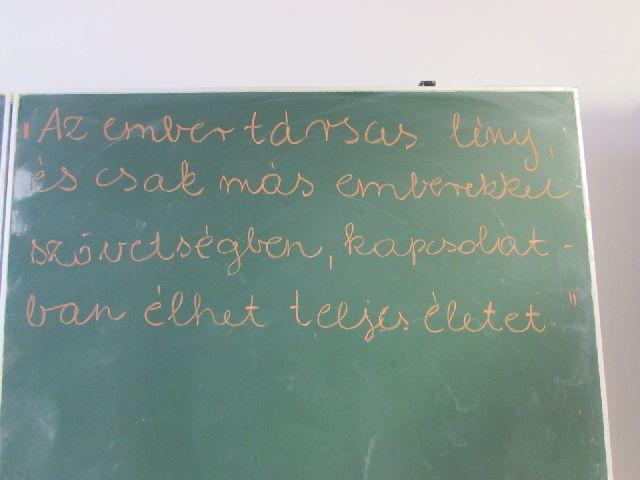 "Az ember társas lény,
és csak más emberekkel
szövetségben, kapcsolat-
ban élhet teljes életet."